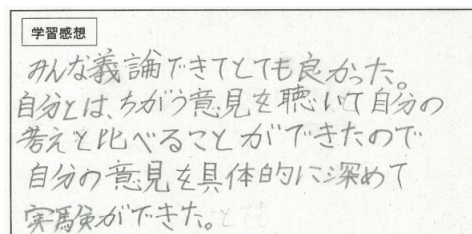 学習感想
みんな義論できてとても良かった。
自分とは、ちがう意見を聴いて自分の
考えと比べることができたので
自分の意見を具体的に深めて
実験ができた。